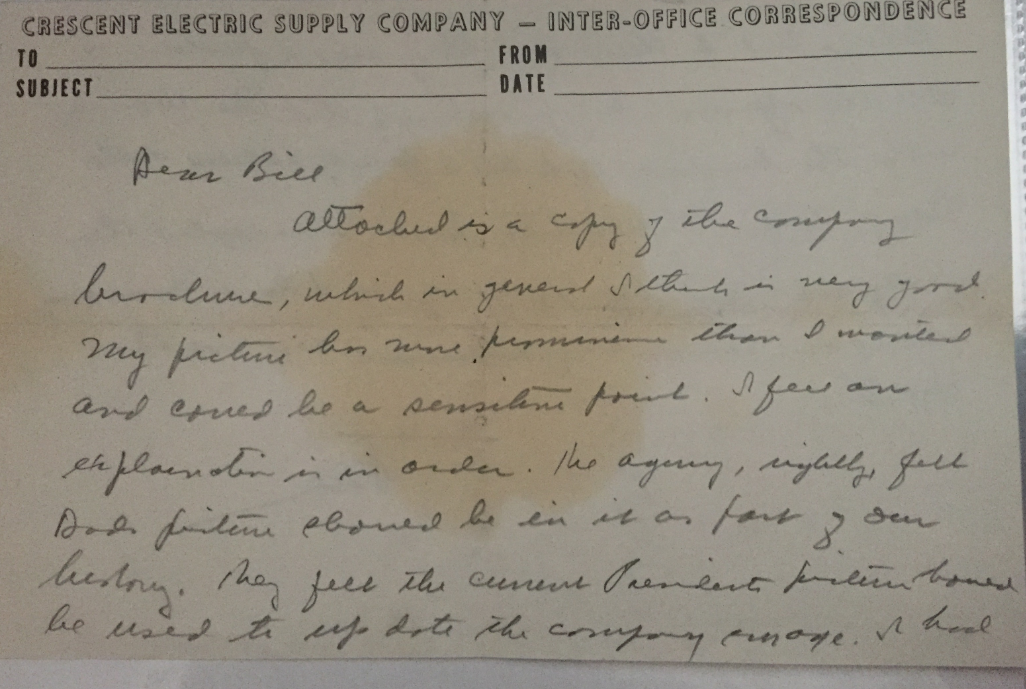 CRESCENT ELECTRIC SUPPLY COMPANY — INTER-OFFICE CORRESPONDENCE
TO FROM
SUBJECT DATE
Dear Bill
Attached is a copy of the company
brochure, which in general I think is very good.
My picture has more prominence than I wanted
and could be a sensitive point. I feel an
explanation is in order. The agency, rightly, felt
Dads picture should be in it as part of our
history. They felt the current Presidents picture
be used to up date the company image. I had